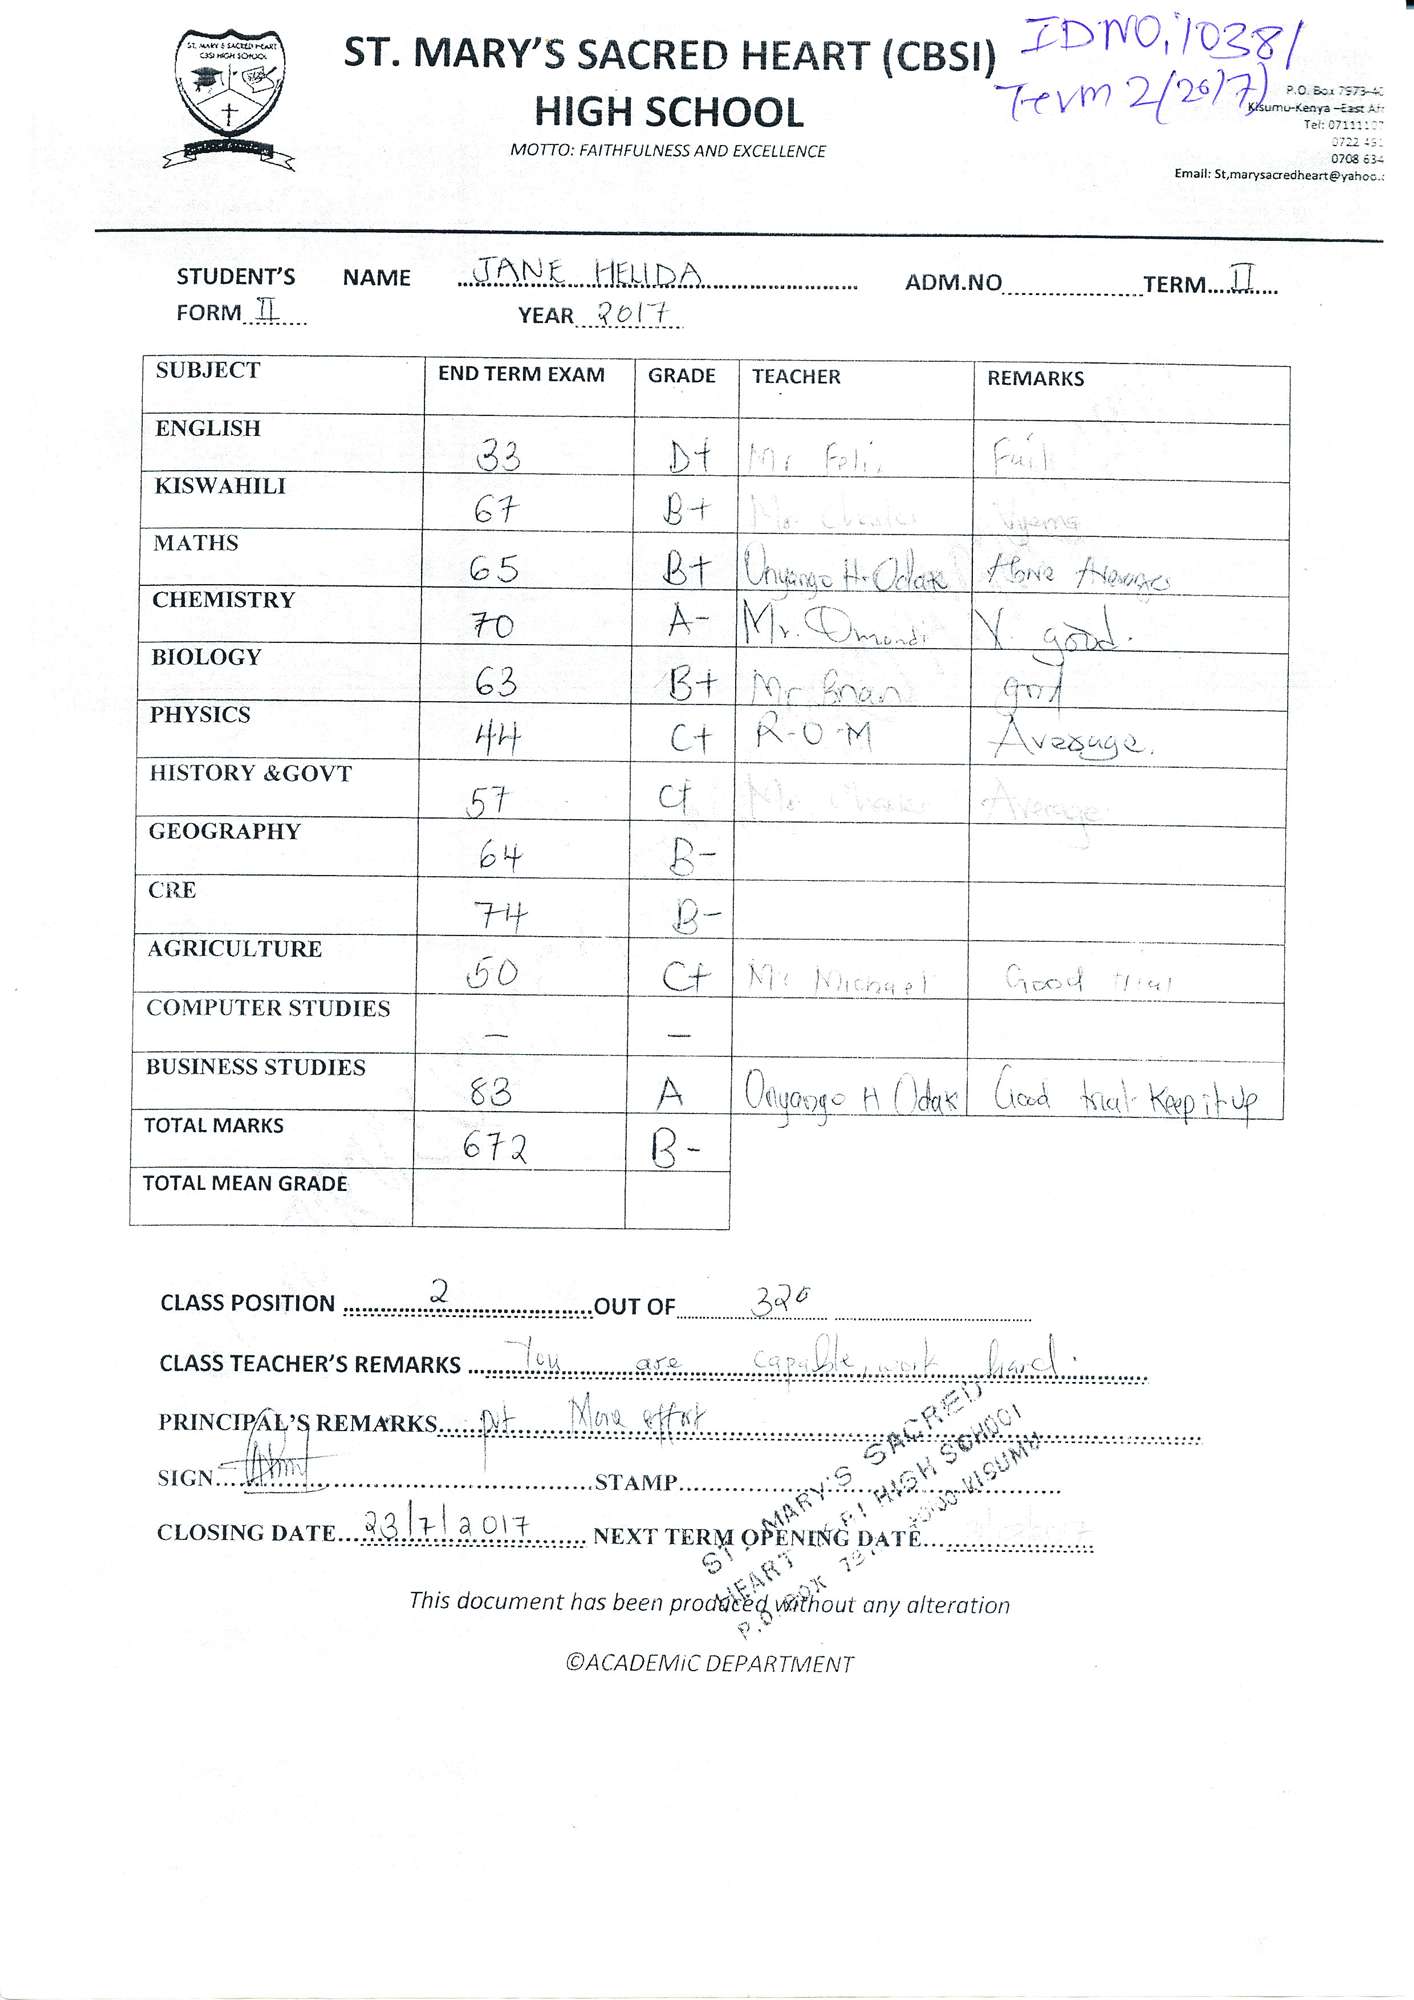 ST. MARY'S SACRED HEART
CBSI HIGH SCHOOL
ST. MARY'S SACRED HEART (CBSI)
HIGH SCHOOL
MOTTO: FAITHFULNESS AND EXCELLENCE
IDNO; 1038/
Term 2/(2017)
P.O. Box 7973-40
Kisumu-Kenya –East Afr
Tel: 07111
0722 451
0708 634
Email: St,marysacredheart@yahoo.
STUDENT'S NAME JANE HELIDA ADM.NO TERM II
FORM II YEAR 2017
SUBJECT END TERM EXAM GRADE TEACHER REMARKS
ENGLISH 33 D+ Mr Feli Fail
KISWAHILI 67 B+ Mr. Charles Vyema
MATHS 65 B+ Onyango H. Odak Above Average
CHEMISTRY 70 A- Mr. Omondi V. good.
BIOLOGY 63 B+ Mr Brian good
PHYSICS 44 C+ R-O-M Average.
HISTORY &GOVT 57 C+ Mr Charles Average
GEOGRAPHY 64 B-
CRE 74 B-
AGRICULTURE 50 C+ Mr Michael Good trial
COMPUTER STUDIES — —
BUSINESS STUDIES 83 A Onyango H Odak Good trial Keep it up
TOTAL MARKS 672 B-
TOTAL MEAN GRADE
CLASS POSITION 2 OUT OF 320
CLASS TEACHER'S REMARKS You are capable, work hard.
PRINCIPAL'S REMARKS put More effort
SIGN STAMP
ST. MARY'S SACRED
HEART HIGH SCHOOL
P.O. BOX KISUMU
CLOSING DATE 23/7/2017 NEXT TERM OPENING DATE
This document has been produced without any alteration
©ACADEMiC DEPARTMENT